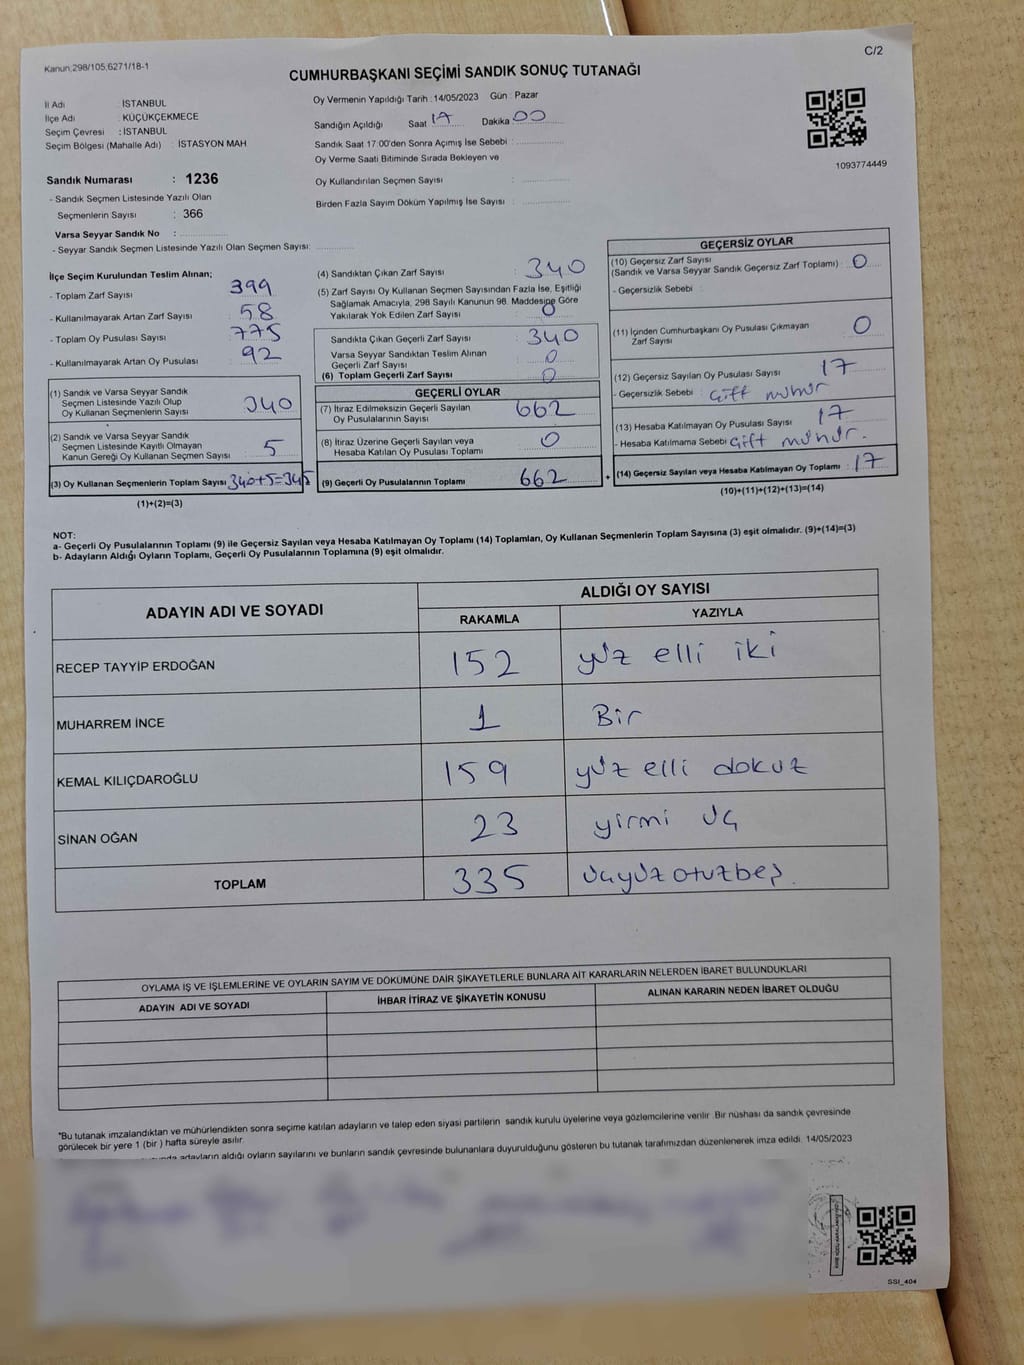 C/2
Kanun;298/105,6271/18-1
CUMHURBAŞKANI SEÇİMİ SANDIK SONUÇ TUTANAĞI
İl Adı : İSTANBUL
İlçe Adı : KÜÇÜKÇEKMECE
Seçim Çevresi : İSTANBUL
Seçim Bölgesi (Mahalle Adı) : İSTASYON MAH
Oy Vermenin Yapıldığı Tarih : 14/05/2023 Gün : Pazar
Sandığın Açıldığı Saat 17 Dakika 00
Sandık Saat 17:00'den Sonra Açımış İse Sebebi :
Oy Verme Saati Bitiminde Sırada Bekleyen ve
Oy Kullandırılan Seçmen Sayısı :
Birden Fazla Sayım Döküm Yapılmış İse Sayısı :
1093774449
Sandık Numarası : 1236
- Sandık Seçmen Listesinde Yazılı Olan
Seçmenlerin Sayısı : 366
Varsa Seyyar Sandık No :
- Seyyar Sandık Seçmen Listesinde Yazılı Olan Seçmen Sayısı:
İlçe Seçim Kurulundan Teslim Alınan;
- Toplam Zarf Sayısı : 399
- Kullanılmayarak Artan Zarf Sayısı : 58
- Toplam Oy Pusulası Sayısı : 775
- Kullanılmayarak Artan Oy Pusulası : 92
(1) Sandık ve Varsa Seyyar Sandık
Seçmen Listesinde Yazılı Olup
Oy Kullanan Seçmenlerin Sayısı 340
(2) Sandık ve Varsa Seyyar Sandık
Seçmen Listesinde Kayıtlı Olmayan
Kanun Gereği Oy Kullanan Seçmen Sayısı 5
(3) Oy Kullanan Seçmenlerin Toplam Sayısı 340+5=345
(1)+(2)=(3)
(4) Sandıktan Çıkan Zarf Sayısı : 340
(5) Zarf Sayısı Oy Kullanan Seçmen Sayısından Fazla İse, Eşitliği
Sağlamak Amacıyla, 298 Sayılı Kanunun 98. Maddesine Göre
Yakılarak Yok Edilen Zarf Sayısı : 0
Sandıkta Çıkan Geçerli Zarf Sayısı : 340
Varsa Seyyar Sandıktan Teslim Alınan
Geçerli Zarf Sayısı : 0
(6) Toplam Geçerli Zarf Sayısı : 0
GEÇERLİ OYLAR
(7) İtiraz Edilmeksizin Geçerli Sayılan
Oy Pusulalarının Sayısı : 662
(8) İtiraz Üzerine Geçerli Sayılan veya
Hesaba Katılan Oy Pusulası Toplamı : 0
(9) Geçerli Oy Pusulalarının Toplamı : 662
+
GEÇERSİZ OYLAR
(10) Geçersiz Zarf Sayısı
(Sandık ve Varsa Seyyar Sandık Geçersiz Zarf Toplamı) : 0
- Geçersizlik Sebebi :
(11) İçinden Cumhurbaşkanı Oy Pusulası Çıkmayan
Zarf Sayısı : 0
(12) Geçersiz Sayılan Oy Pusulası Sayısı : 17
- Geçersizlik Sebebi : Çift mühür
(13) Hesaba Katılmayan Oy Pusulası Sayısı : 17
- Hesaba Katılmama Sebebi : Çift mühür.
(14) Geçersiz Sayılan veya Hesaba Katılmayan Oy Toplamı : 17
(10)+(11)+(12)+(13)=(14)
NOT:
a- Geçerli Oy Pusulalarının Toplamı (9) ile Geçersiz Sayılan veya Hesaba Katılmayan Oy Toplamı (14) Toplamları, Oy Kullanan Seçmenlerin Toplam Sayısına (3) eşit olmalıdır. (9)+(14)=(3)
b- Adayların Aldığı Oyların Toplamı, Geçerli Oy Pusulalarının Toplamına (9) eşit olmalıdır.
ADAYIN ADI VE SOYADI
ALDIĞI OY SAYISI
RAKAMLA YAZIYLA
RECEP TAYYİP ERDOĞAN 152 yüz elli iki
MUHARREM İNCE 1 Bir
KEMAL KILIÇDAROĞLU 159 yüz elli dokuz
SİNAN OĞAN 23 yirmi üç
TOPLAM 335 üçyüz otuzbeş.
OYLAMA İŞ VE İŞLEMLERİNE VE OYLARIN SAYIM VE DÖKÜMÜNE DAİR ŞİKAYETLERLE BUNLARA AİT KARARLARIN NELERDEN İBARET BULUNDUKLARI
ADAYIN ADI VE SOYADI İHBAR İTİRAZ VE ŞİKAYETİN KONUSU ALINAN KARARIN NEDEN İBARET OLDUĞU
"Bu tutanak imzalandıktan ve mühürlendikten sonra seçime katılan adayların ve talep eden siyasi partilerin sandık kurulu üyelerine veya gözlemcilerine verilir. Bir nüshası da sandık çevresinde
görülecek bir yere 1 (bir ) hafta süreyle asılır.
adayların aldığı oyların sayılarını ve bunların sandık çevresinde bulunanlara duyurulduğunu gösteren bu tutanak tarafımızdan düzenlenerek imza edildi. 14/05/2023
SSI_404